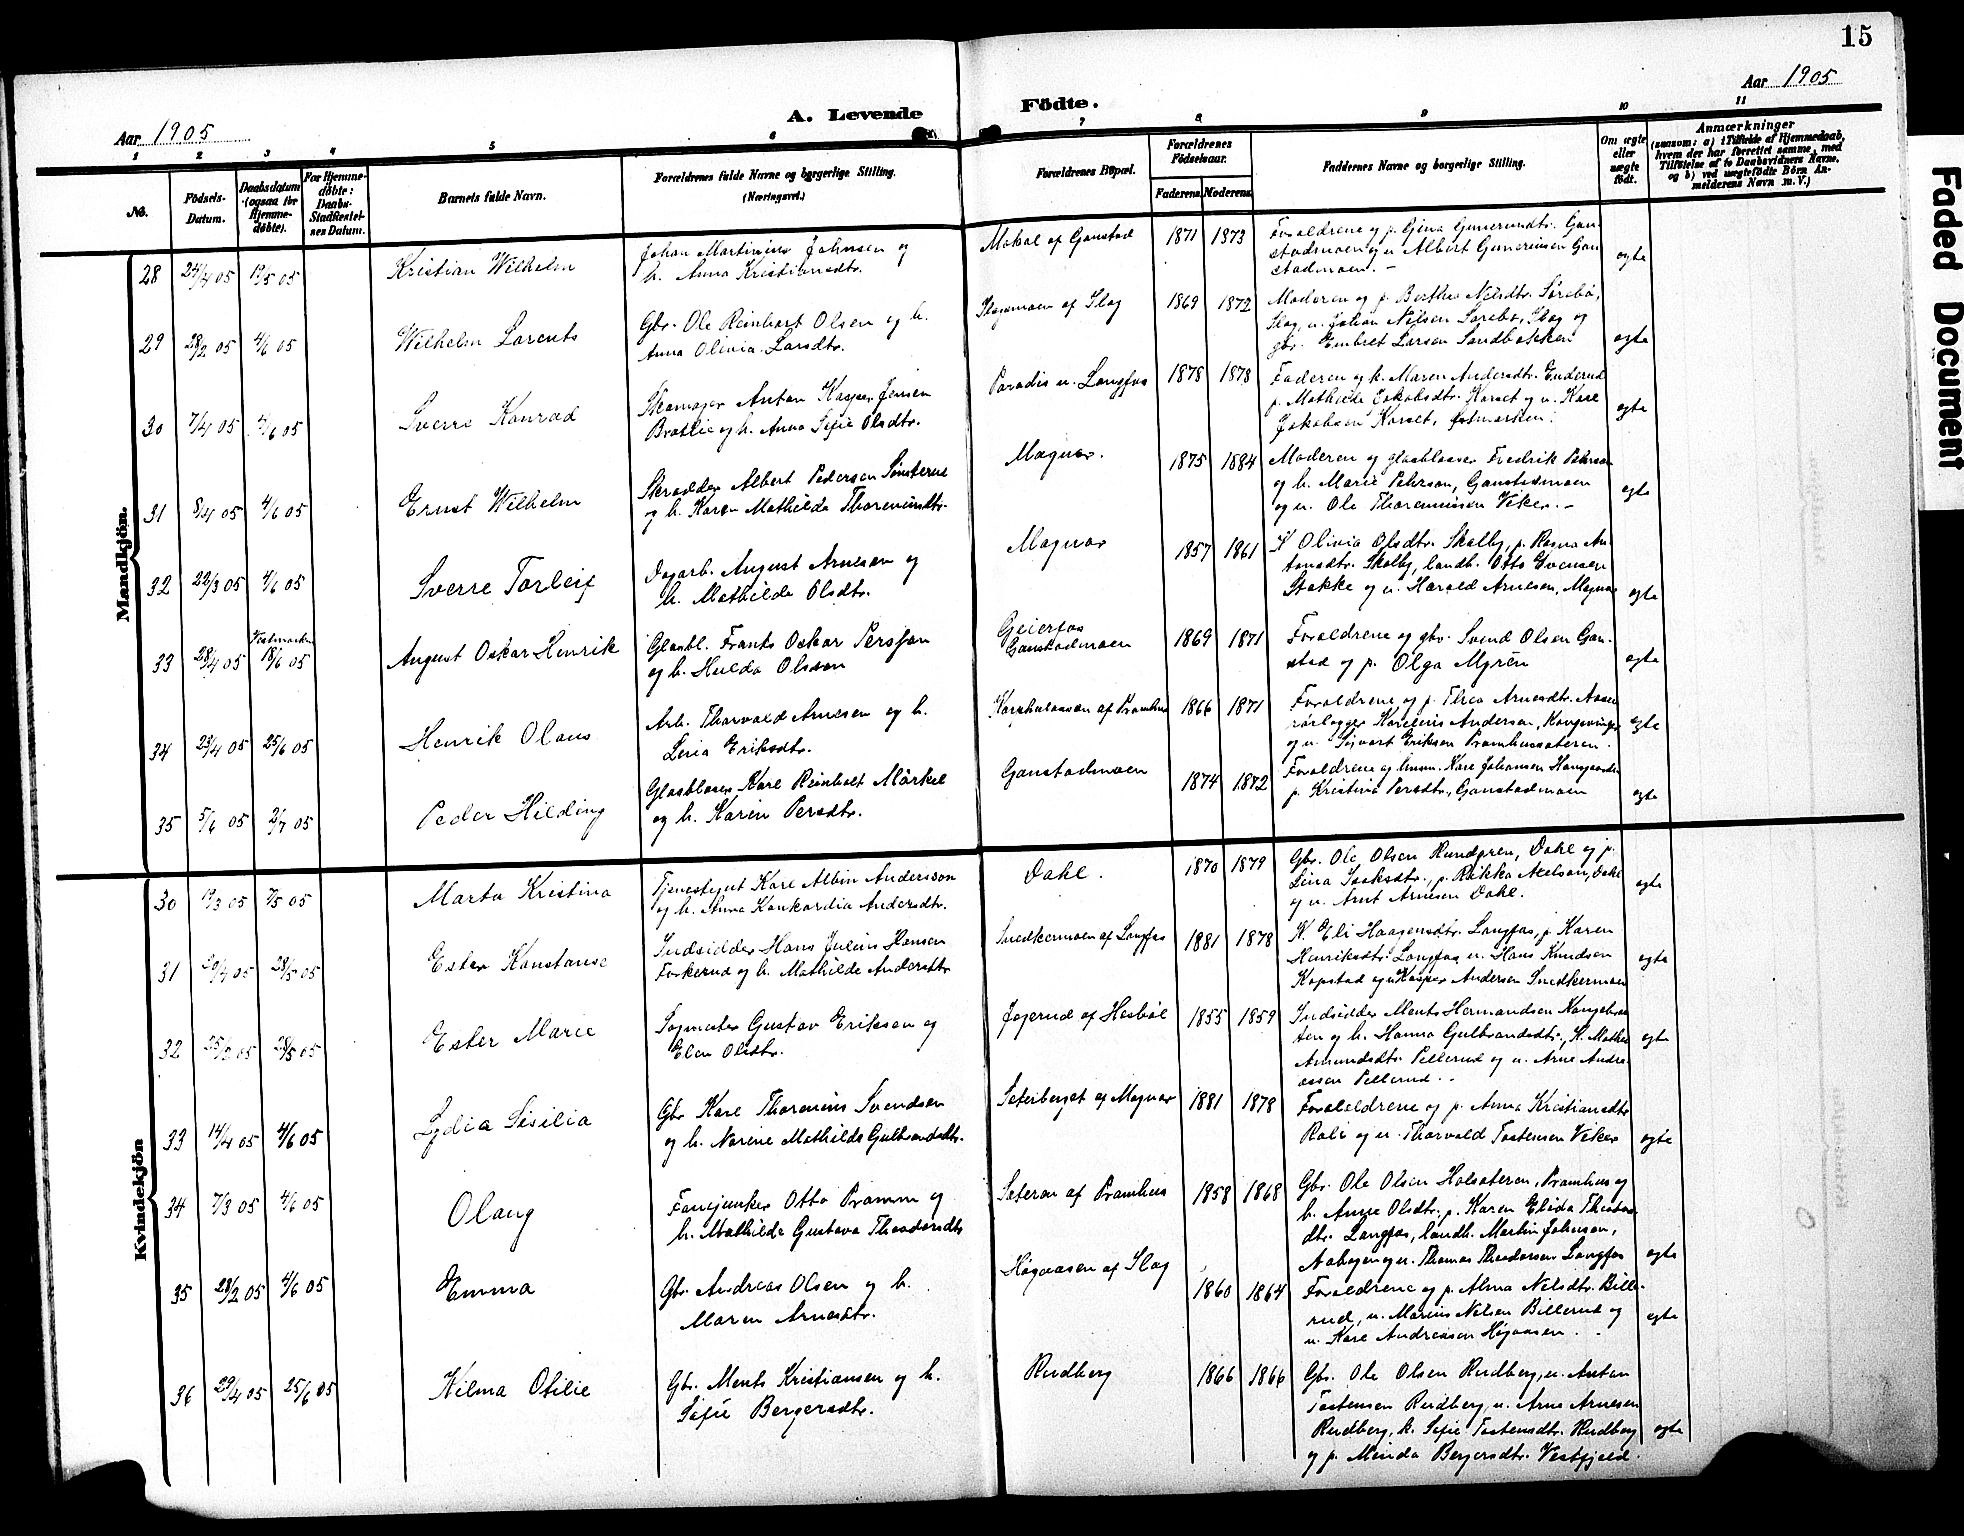 15
Aar 1905
A. Levende
Födte.
Aar 1905
1 2 3 4 5 6 7 8 9 10 11
No.
Födsels-
Datum.
Daabsdatum
(ogsaa for
Hjemme-
döbte).
For Hjemme-
döbte:
Daabs-
Stadfæstel-
ses Datum.
Barnets fulde Navn.
Forældrenes fulde Navne og borgerlige Stilling.
(Næringsvei.)
Forældrenes Bopæl.
Forældrenes
Födselsaar.
Faderens. Moderens.
Faddernes Navne og borgerlige Stilling.
Om ægte
eller
uægte
födt.
Anmærkninger
(saasom: a) i Tilfælde af Hjemmedaab,
hvem der har forrettet samme, med
Tilföielse af to Daabsvidners Navne,
og b) ved uægtefödte Börn An-
melderens Navn m. V.)
Mandkjön.
28 24/4 05 19/5 05 Kristian Wilhelm
Johan Martinius Johnsen og
h. Anna Kristiansdtr.
Mokal af Gaustad 1871 1873
Forældrene og p. Gina Gunerusdtr. Gau-
stadmoen og u. Albert Gunerius Gau
stadmoen. –
egte
29 28/2 05 4/6 05 Wilhelm Lorents
Gbr. Ole Reinhart Olsen og h.
Anna Olivia Larsdtr.
Slogsmoen af Slog 1869 1872
Moderen og p. Berthe Nilsdtr. Sörebö,
Slog, u. Johan Nilsen Sorebo, Slog og
gbr. Embret Larsen Sandbakken
egte
30 7/4 05 4/6 05 Sverre Konrad
Skomager Anton Kasper Jensen
Brotlie og h. Anna Sofie Olsdtr.
Paradis u. Langfos 1878 1878
Faderen og k. Maren Andersdtr. Enderud
p. Mathilde Jakobsdtr. Korset og u. Karl
Jakobsen Korset, Østmarken.
egte
31 8/4 05 4/6 05 Ernst Wilhelm
Skrædder Albert Pedersen Sinterud
og h. Karen Mathilda Thoreniusdtr.
Magnor. 1875 1884
Moderen og glasblaaser Fredrik Peterson
og h. Marie Peterson, Gaustadmoen
og u. Ole Thoreniussen Veker. –
egte
32 22/3 05 4/6 05 Sverre Torleif
Dagarb. August Arnesen og
h. Mathilde Olsdtr.
Magnor 1857 1861
K Olivia Olsdtr. Skolby, p. Ragna An
tonsdtr. Skolby, landh. Otto Svensen
Stokke og u. Harald Arnesen, Magnor
egte
33 28/4 05 Vestmarken 18/6 05 August Oskar Henrik
Glasbl. Frants Oskar Persson
og h. Hulda Olsson
Geierfos
Gaustadmoen 1869 1871
Forældrene og gbr. Svend Olsen Gau-
stad og p. Olga Myrén
egte
34 23/4 05 25/6 05 Henrik Olaus
Arb. Thorvald Arnesen og h.
Lina Eriksdtr.
af Pramhus 1866 1871
Forældrene og p. Thea Arnesdtr. Aasen
rörlægger Karelius Andersen, Kongsvinger
og u. Sigvart Eriksen Pramhussæteren.
egte
35 5/6 05 2/7 05 Peder Hilding
Glasblaser Karl Reinholt Märkel
og h. Karin Persdtr.
Gaustadmoen 1874 1872
Forældrene og Karl Johansen
p. Kristina Persdtr., Gaustadmoen
egte
Kvindekjön
30 19/3 05 7/5 05 Marta Kristina
Tjenestegut Karl Albin Andersson
og h. Anna Konkordia Andersdtr.
Dahl. 1870 1879
Gbr. Ole Olsen Rundgren, Dahl og p.
Lina Isaksdtr., p. Rikka Axelson, Dahl
og u. Arnt Arnesen Dahl.
egte
31 29/4 05 28/5 05 Ester Konstanse
Indsidder Hans Julius Hansen
Forkerud og h. Mathilde Andersdtr.
Snedkermoen af Langfos 1881 1878
K. Eli Haagensdtr. Langfos, p. Karen
Henriksdtr. Langfos u. Hans Knudsen
Kopstad og u Kasper Andersen Snedkermoen
egte
32 25/3 05 28/5 05 Ester Marie
Sagmester Gustav Eriksen og
Elen Olsdtr.
Jogerud af Hesböl 1855 1859
Indsidder Ments Hermandsen Kongshus
ten og h. Hanna Gulbrandsdtr., K. Mathea
Amundsdtr. Pellerud og u. Arne Andre-
assen Pellerud. .
egte
33 14/4 05 4/6 05 Lydia Sisilia
Gbr Karl Thorenius Svendsen
og h. Norine Mathilde Gulbrandsdtr.
Seterberget af Magnor 1881 1878
Forældrene og p. Anna Kristiansdtr
Roli og u. Thorvald Tostensen Veker
egte
34 7/3 05 4/6 05 Olaug
Fanejunker Otto Pramm og
h. Mathilde Gustava Theodorsdtr
Seteren af Pramhus 1858 1868
Gbr. Ole Olsen Holsæteren, Pramhus og
h. Anne Olsdtr. p. Karen Elida Theodor
dtr. Langfos, landh. Martin Johnsen,
Aabogen og u. Thomas Theodorsen Langfos
egte
35 28/2 05 4/6 05 Emma
Gbr. Andreas Olsen og h.
Maren Arnesdtr.
Högaasen af Slog 1860 1864
Forældrene og p. Alma Nilsdtr. Bille-
rud, u. Marius Nilsen Billerud og
u. Karl Andreasen Högaasen.
egte
36 29/4 05 25/6 05 Wilma Otilie
Gbr. Ments Kristiansen og h.
Sofie Bergersdtr.
Rudberg 1866 1866
Gbr. Ole Olsen Rudberg, u. Anton
Tostensen Rudberg, u. Arne Arnesen
Rudberg, k. Sofie Tostensdtr. Rudberg
og p. Minda Bergersdtr. Vestfjeld.
egte
Faded Document